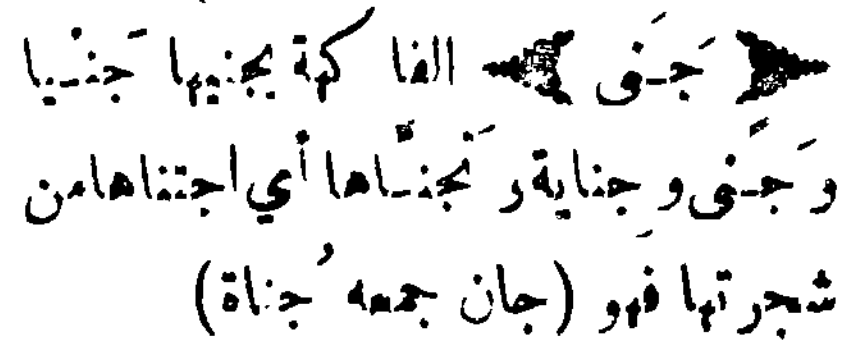 ﴿ جَـنَى ﴾ الفاكهة يجنيها جَنْـيا
و جَـنًى و جِناية و تَجنـَّاها أي اجتناها من
شجرتها فهو (جان جمعه جُناة)